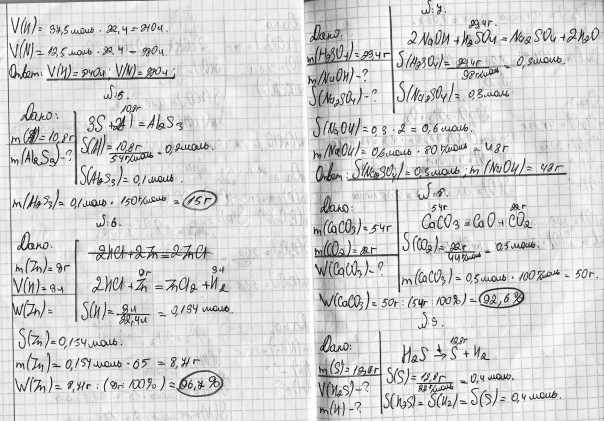 V(H) = 37,5 моль · 22,4 = 840л.
V(N) = 12,5 моль · 22,4 = 280л
Ответ: V(H) = 840л; V(N) = 280л;
№5.
Дано:
m(Al) = 10,8г
m(Al₂S₃) - ?
10,8г
3S + 2Al = Al₂S₃
= 10,8г / 54г/моль = 0,2моль.
S(Al₂S₃) = 0,1 моль.
m(Al₂S₃) = 0,1 моль · 150г/моль = 15г
№6.
Дано:
m(Zn) = 9г
V(H) = 3л
W(Zn) =
2HCl + Zn = 2ZnCl
9г 3л
2HCl + Zn = ZnCl₂ + H₂
S(H) = 3л / 22,4л = 0,134 моль.
S(Zn) = 0,134 моль.
m(Zn) = 0,134 моль · 65 = 8,71г
W(Zn) = 8,71г : (9г · 100%) = 96,7%
№7.
Дано:
m(H₂SO₄) = 29,4г
m(NaOH) - ?
S(Na₂SO₄) - ?
29,4г
2NaOH + H₂SO₄ = Na₂SO₄ + 2H₂O
S(H₂SO₄) = 29,4г / 98г/моль = 0,3моль
S(Na₂SO₄) = 0,3моль
S(NaOH) = 0,3 · 2 = 0,6 моль.
m(NaOH) = 0,6моль · 80г/моль = 48г
Ответ: S(Na₂SO₄) = 0,3моль; m(NaOH) = 48г
№8.
Дано:
m(CaCO₃) = 54г
m(CO₂) = 22г
W(CaCO₃) = ?
54г 22г
CaCO₃ = CaO + CO₂
S(CO₂) = 22г / 44г/моль = 0,5моль.
m(CaCO₃) = 0,5моль · 100г/моль = 50г.
W(CaCO₃) = 50г : (54г · 100%) = 92,6%
№9.
Дано:
m(S) = 12,8г
V(H₂S) - ?
m(H) - ?
12,8г
H₂S = S + H₂
S(S) = 12,8г / 32г/моль = 0,4моль.
S(H₂S) = S(H₂) = S(S) = 0,4моль.